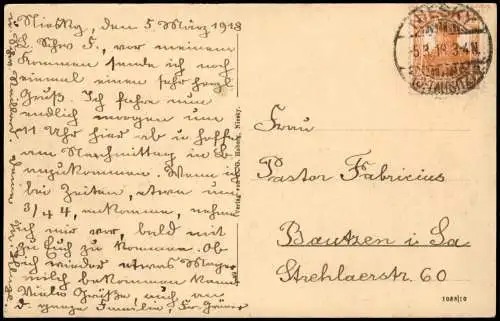 Niesky, den 5. März 1918
L. Schw. F., vor meinem
Kommen sende ich noch
einmal einen sehr herzl.
Gruß. Ich fahre nun
endlich morgen um
11 Uhr hier ab u. hoffe
am Nachmittag in B.
anzukommen. Wenn ich
bei Zeiten, etwa um
3/4 4, ankomme, nehme
ich mir vor, bald mit
zu Euch zu kommen. Ob
ich wieder etwas Mager-
milch bekommen kann?
Viele Grüße, auch an
d. ganze Familie,
Niesky.
NIESKY
5.3.18. 3-4N
Frau
Pastor Fabricius
Bautzen i. Sa.
Strehlaerstr. 60
1088/10